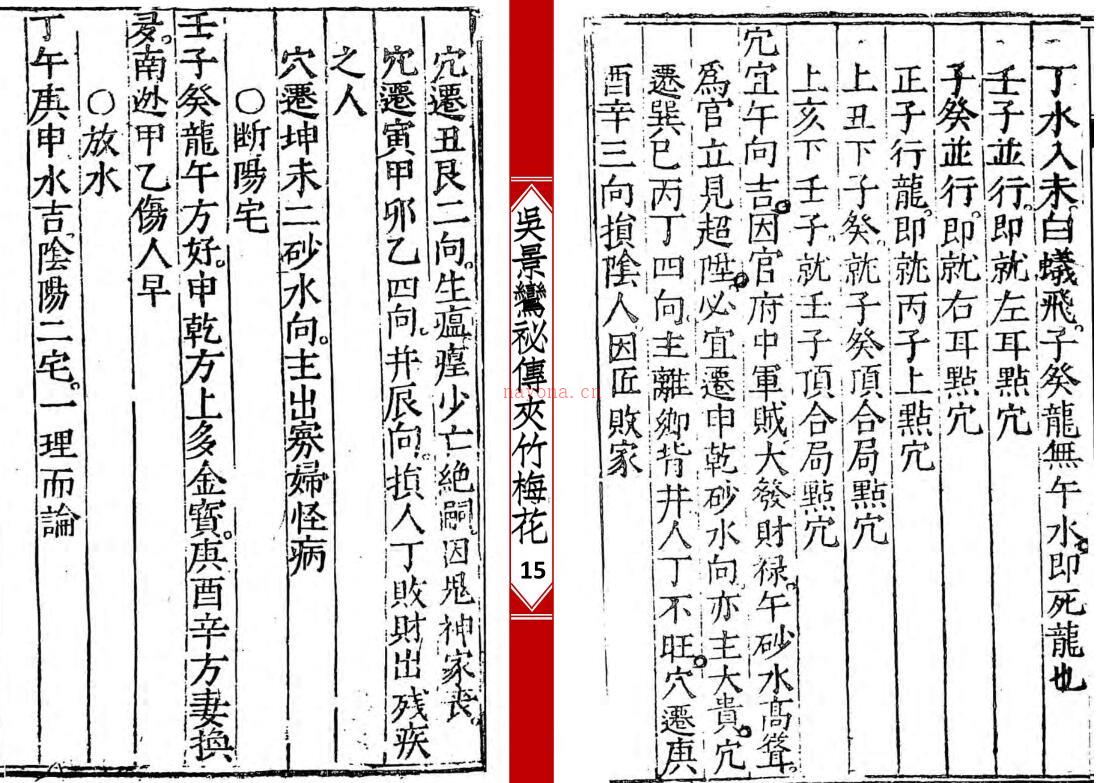 丁水入未白蟻飛。子癸龍無午水。即死龍也
壬子並行。即就左耳點穴
子癸並行。即就右耳點穴
正子行龍。即就丙子上點穴
上丑下子癸。就子癸頂合局點穴
上亥下壬子。就壬子頂合局點穴
穴宜午向吉。因官府中軍賊大發財禄。午砂水高聳。
爲官立見超陞。必宜遷申乾砂水向。亦主大貴。穴
遷巽巳丙丁四向。主離鄉背井人丁不旺。穴遷庚
酉辛三向損陰人因匠敗家
吳景鸞祕傳夾竹梅花
15
nayona.cn
穴遷丑艮二向。生瘟瘽少亡絶嗣。因鬼神家丧。
穴遷寅甲卯乙四向。并辰向。損人丁敗財出残疾
之人
穴遷坤未二砂水向。主出寡婦怪病
○断陽宅
壬子癸龍午方好。申乾方上多金寳。庚酉辛方妻換
南迯甲乙傷人早
○放水
丁午庚申水吉。陰陽二宅。一理而論